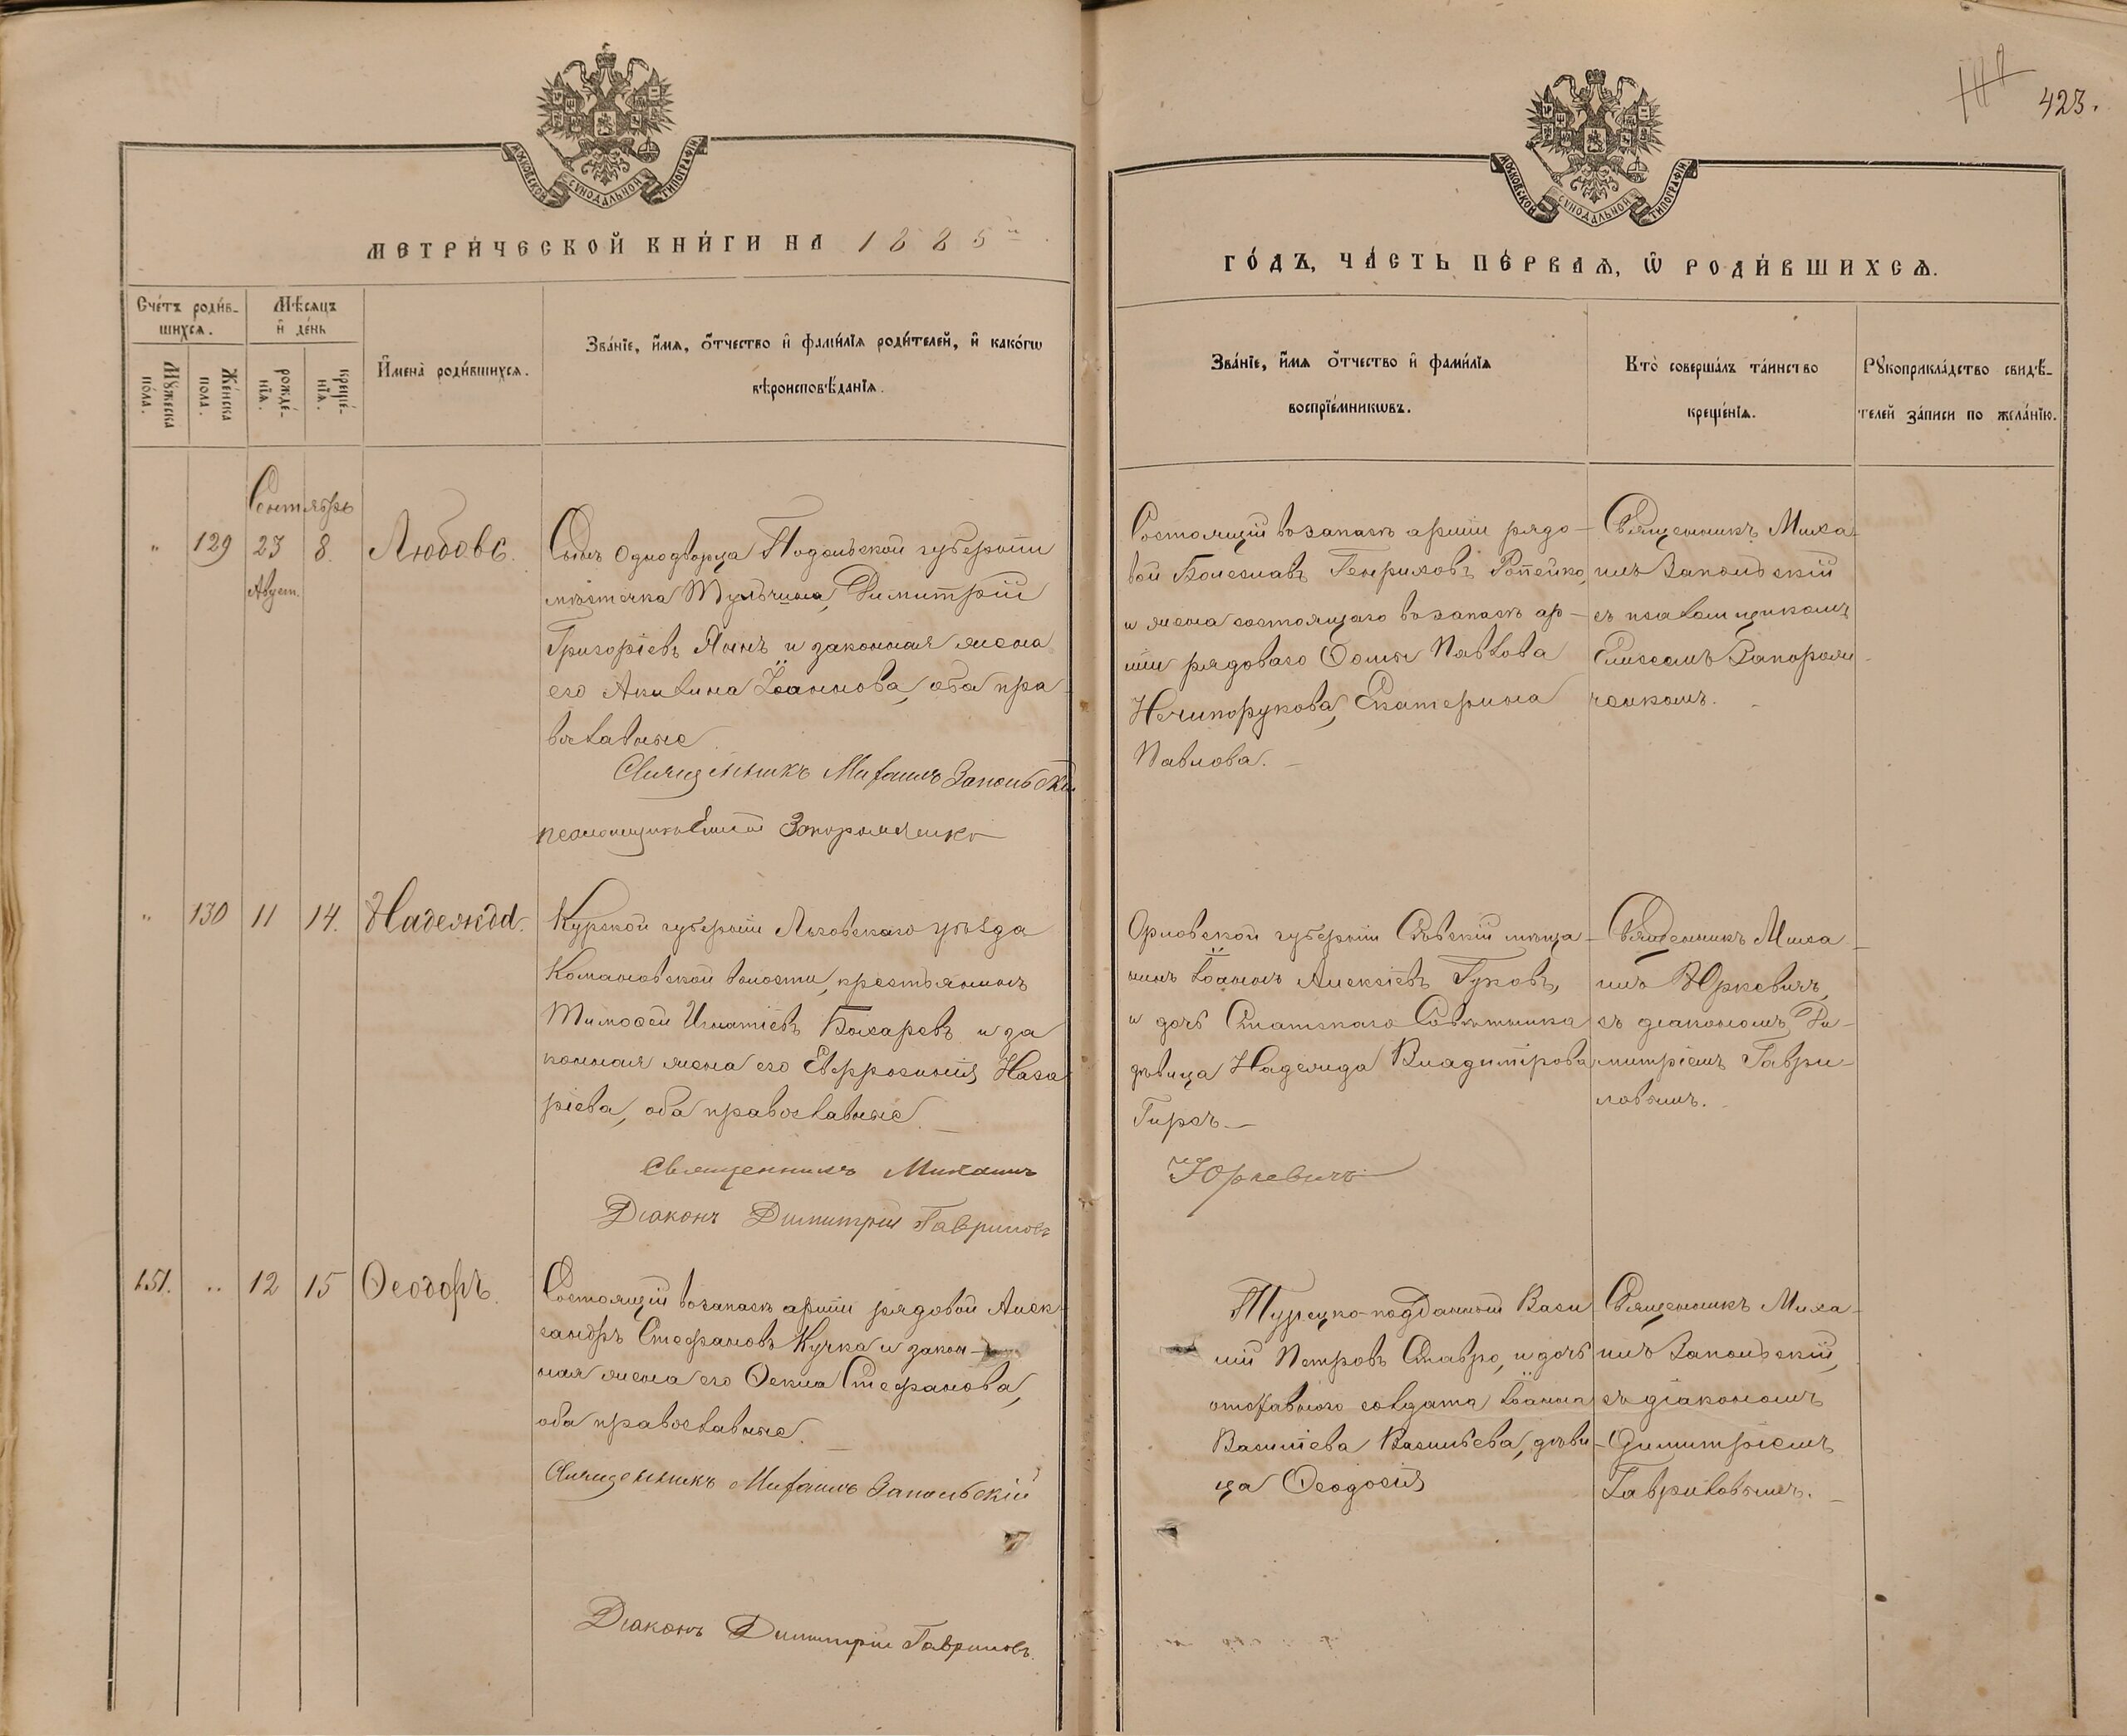 423.
МОСКОВСКОЙ СѴНОДАЛЬНОЙ ТИПОГРАФІИ
МОСКОВСКОЙ СѴНОДАЛЬНОЙ ТИПОГРАФІИ
МЕТРИ́ЧЕСКОЙ КНИ́ГИ НА 1885й
ГО́ДЪ, ЧА́СТЬ ПЕ́РВАѦ, Ѿ РОДИ́ВШИХСѦ.
Счéтъ роди́в-
шихсѧ.
Мѣ́сѧцъ
и҆ де́нь
Мꙋ́жеска
по́ла.
Же́нска
пола.
рожде́-
нїѧ.
креще́-
нїѧ.
И҆мена̀ роди́вшихсѧ.
Зва́нїе, и҆́мѧ, ѻ҆́тчество и҆ фами́лїѧ роди́телей, и҆ како́гѡ
вѣроисповѣ́данїѧ.
Зва́нїе, и҆́мѧ ѻ҆́тчество и҆ фами́лїѧ
воспрїе́мникѡвъ.
Кто̀ соверша́лъ та́инство
креще́нїѧ.
Рꙋкоприкла́дство свидѣ́-
телей за́писи по жела́нїю.
Сентябрь
" 129 23 8. Любовь.
Август.
Сынъ Однодворца Подольской губерніи
мѣстечка Тульчина, Димитрій
Григоріевъ Янъ и законная жена
его Акилина Іоаннова, оба пра-
вославные
Священникъ Михаилъ Запольскій
псаломщикъ Елисей Запорожченко
Состоящій въ запасѣ арміи рядо-
вой Болеславъ Генриховъ Ропейко,
и жена состоящаго въ запасѣ ар-
міи рядоваго Ѳомы Павлова
Нечипорукова, Екатерина
Павлова.
Священникъ Миха-
илъ Запольскій
съ псаломщикомъ
Елисеемъ Запорож-
ченкомъ.
" 130 11 14. Надежда.
Курской губерніи Льговскаго уѣзда
Комановской волости, крестьянинъ
Тимоѳей Игнатіевъ Бохаревъ и за
конная жена его Евфросинія Наза
ріева, оба православные.
Священникъ Михаилъ
Діаконъ Димитрій Гавриловъ
Орловской губерніи Сѣвскій мѣща-
нинъ Іоаннъ Алексіевъ Гуковъ,
и дочь Статскаго Совѣтника
дѣвица Надежда Владимірова
Гирсъ.
Юркевичъ
Священникъ Миха-
илъ Юркевичъ,
съ діакономъ Ди-
митріемъ Гаври-
ловымъ.
151. " 12 15 Ѳеодоръ.
Состоящій въ запасѣ арміи рядовой Алек-
сандръ Стефановъ Кучка и закон-
ная жена его Ѳекла Стефанова,
оба православные.
Священникъ Михаилъ Запольскій
Діаконъ Димитрій Гавриловъ
Турецко-подданный Васи
лій Петровъ Ставро, и дочь
отставного солдата Іоанна
Василіева Васильева, дѣви-
ца Ѳеодосія
Священникъ Миха-
илъ Запольскій,
съ діакономъ
Димитріемъ
Гавриловымъ.